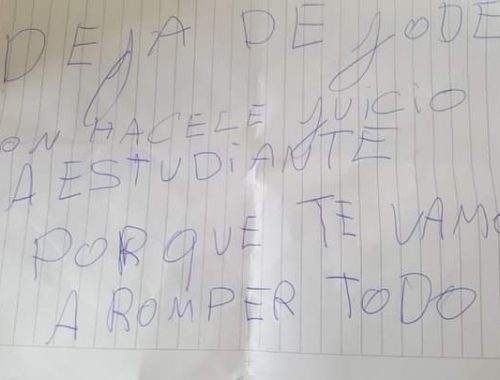 DEJA DE JODE
ON HACELE JUICIO
A ESTUDIANTE
PORQUE TE VAMO
A ROMPER TODO